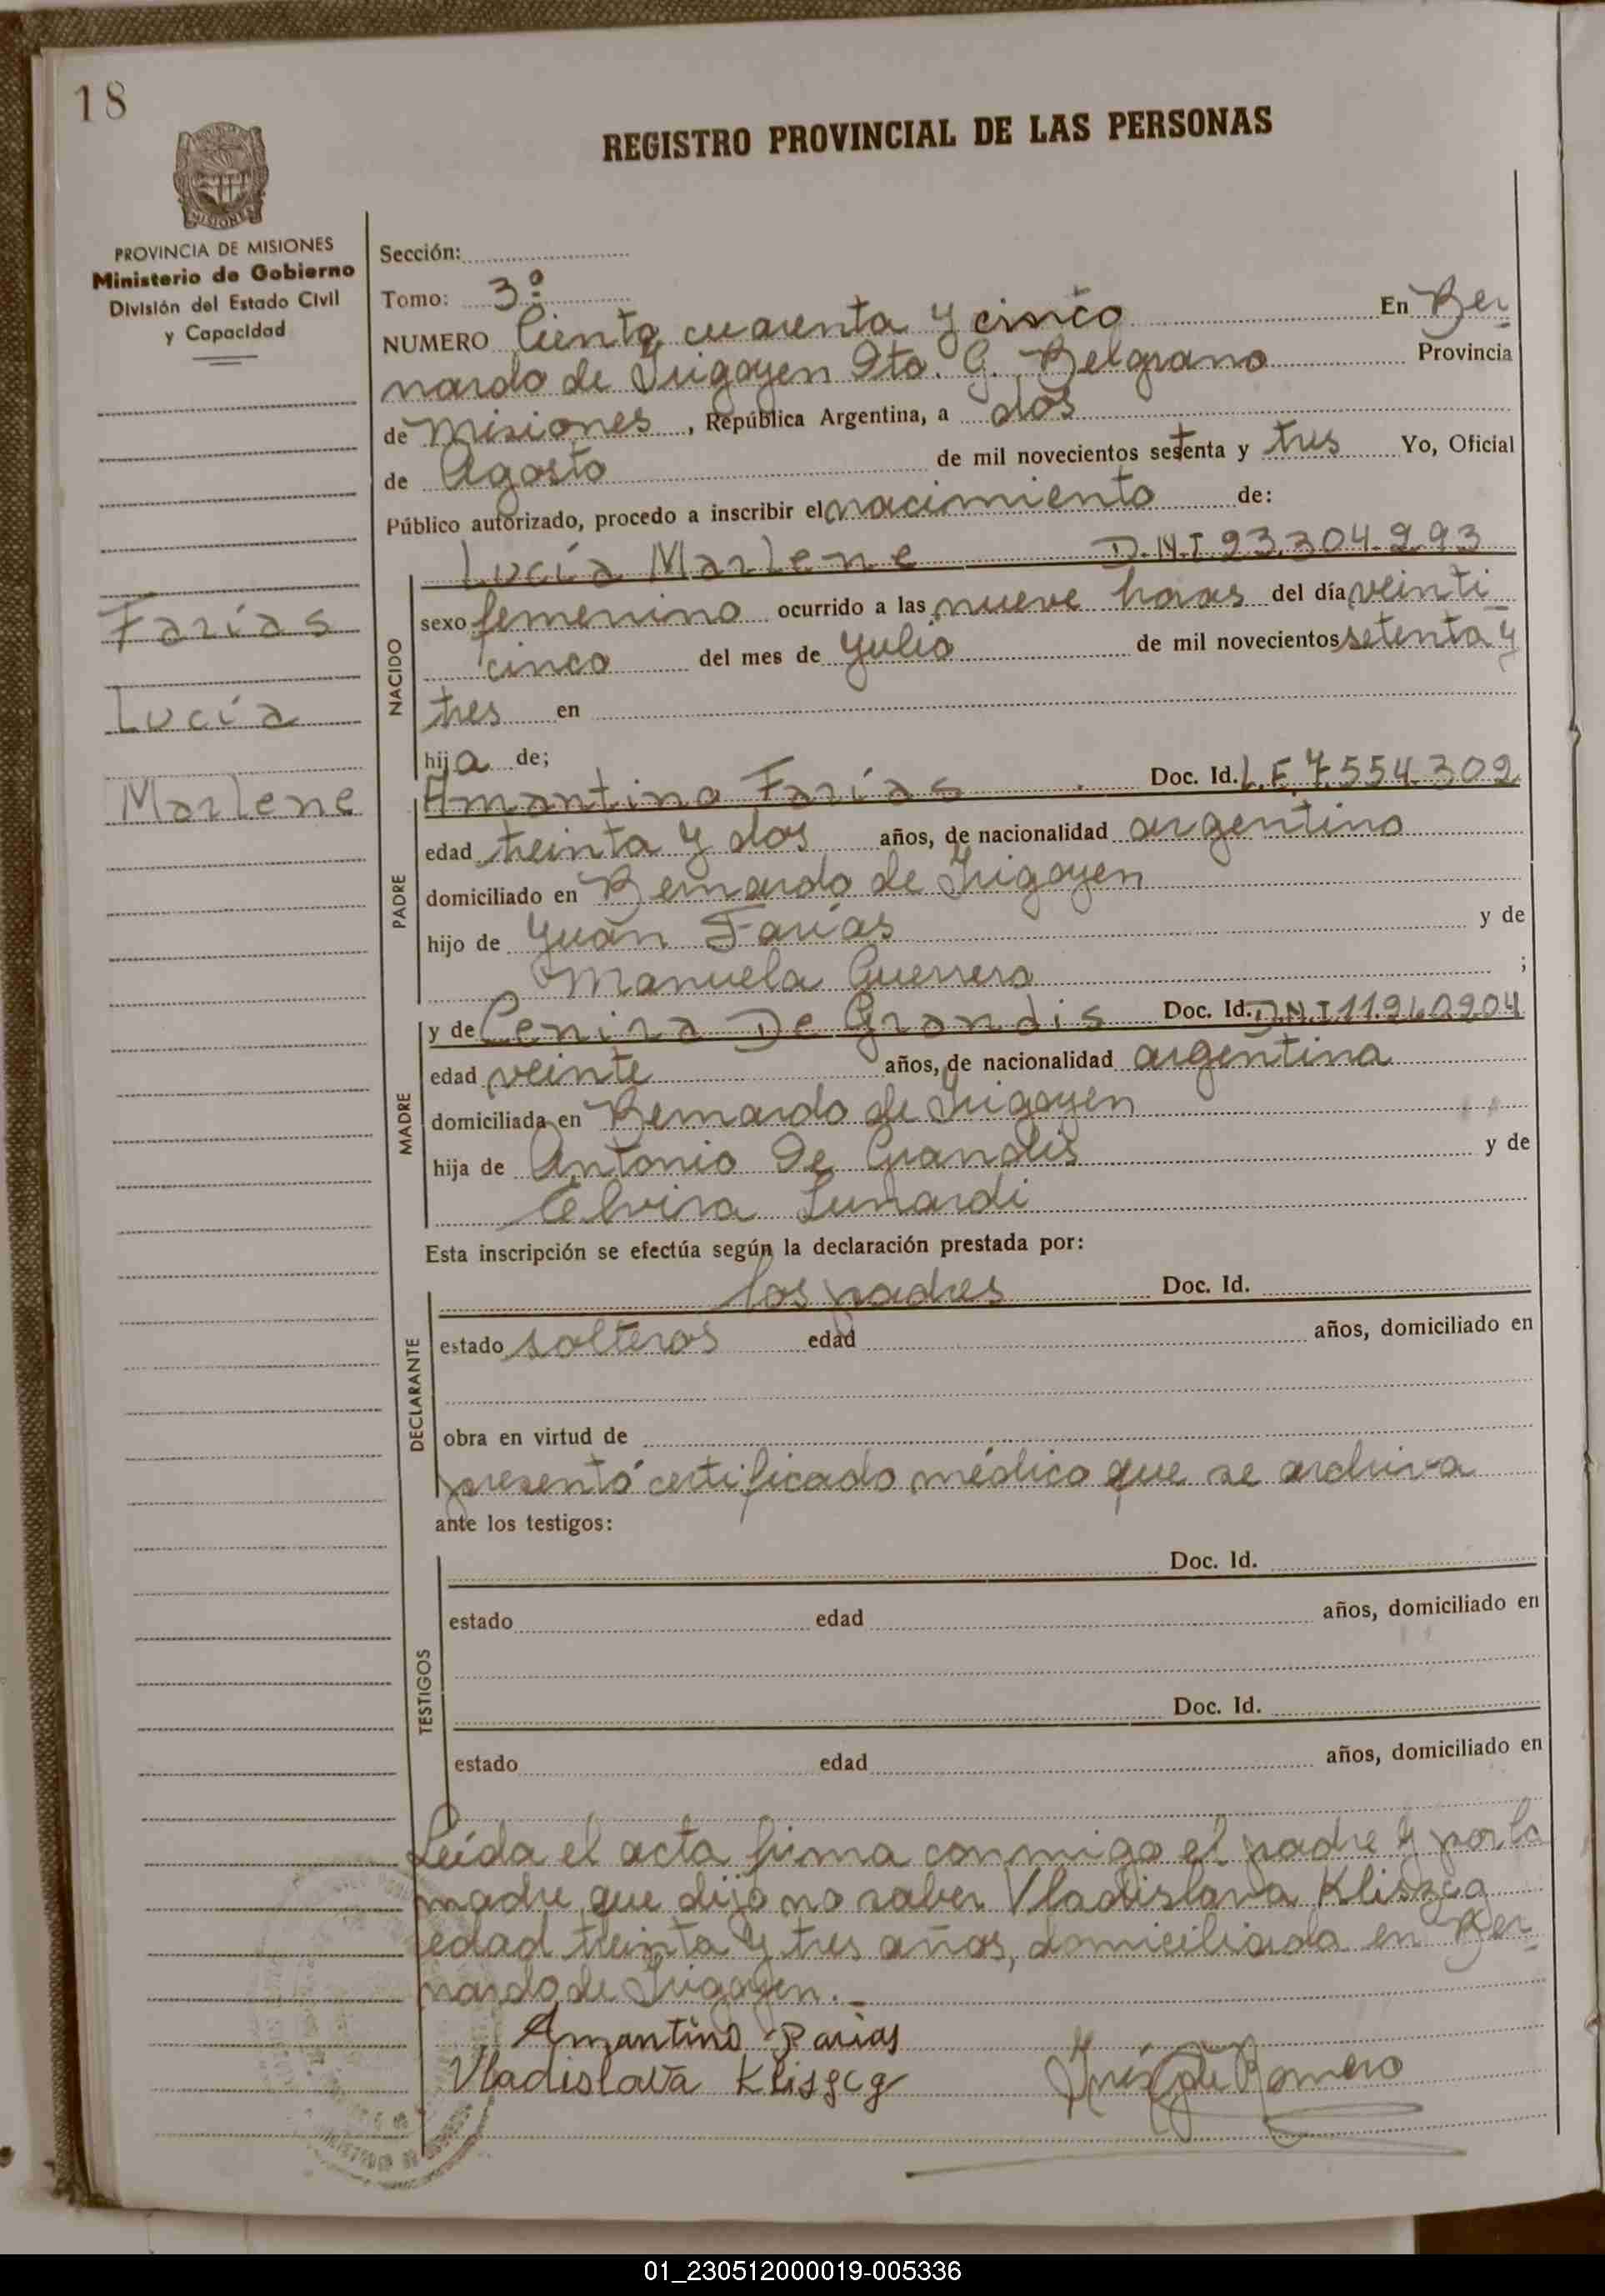 18
REGISTRO PROVINCIAL DE LAS PERSONAS
MISIONES
PROVINCIA DE MISIONES
Ministerio de Gobierno
División del Estado Civil
y Capacidad
Sección:
Tomo: 3º
NUMERO Ciento cuarenta y cinco En Ber
nardo de Irigoyen Dto. G. Belgrano Provincia
de Misiones, República Argentina, a dos
de Agosto de mil novecientos setenta y tres Yo, Oficial
Público autorizado, procedo a inscribir el nacimiento de:
Lucía Marlene D.N.I 23.304.293
Farías
Lucía
Marlene
NACIDO
sexo femenino ocurrido a las nueve horas del día veinti
cinco del mes de Julio de mil novecientos setenta y
tres en
hija de;
PADRE
Amantino Farías Doc. Id. L.E. 7.554.302
edad treinta y dos años, de nacionalidad argentino
domiciliado en Bernardo de Irigoyen
hijo de Juan Farías y de
Manuela Guerrero ;
MADRE
y de Cenira De Grandis Doc. Id. D.N.I 11.260204
edad veinte años, de nacionalidad argentina
domiciliada en Bernardo de Irigoyen
hija de Antonio De Grandis y de
Elvira Lunardi
Esta inscripción se efectúa según la declaración prestada por:
DECLARANTE
los padres Doc. Id.
estado solteros edad años, domiciliado en
obra en virtud de
presentó certificado médico que se archiva
ante los testigos:
TESTIGOS
Doc. Id.
estado edad años, domiciliado en
Doc. Id.
estado edad años, domiciliado en
Leída el acta firma conmigo el padre y por la
madre que dijo no saber Vladislava Kliszcg
edad treinta y tres años, domiciliada en Ber
nardo de Irigoyen.
Amantino Farias
Vladislava Kliszcg
Inés de Romero
01_230512000019-005336